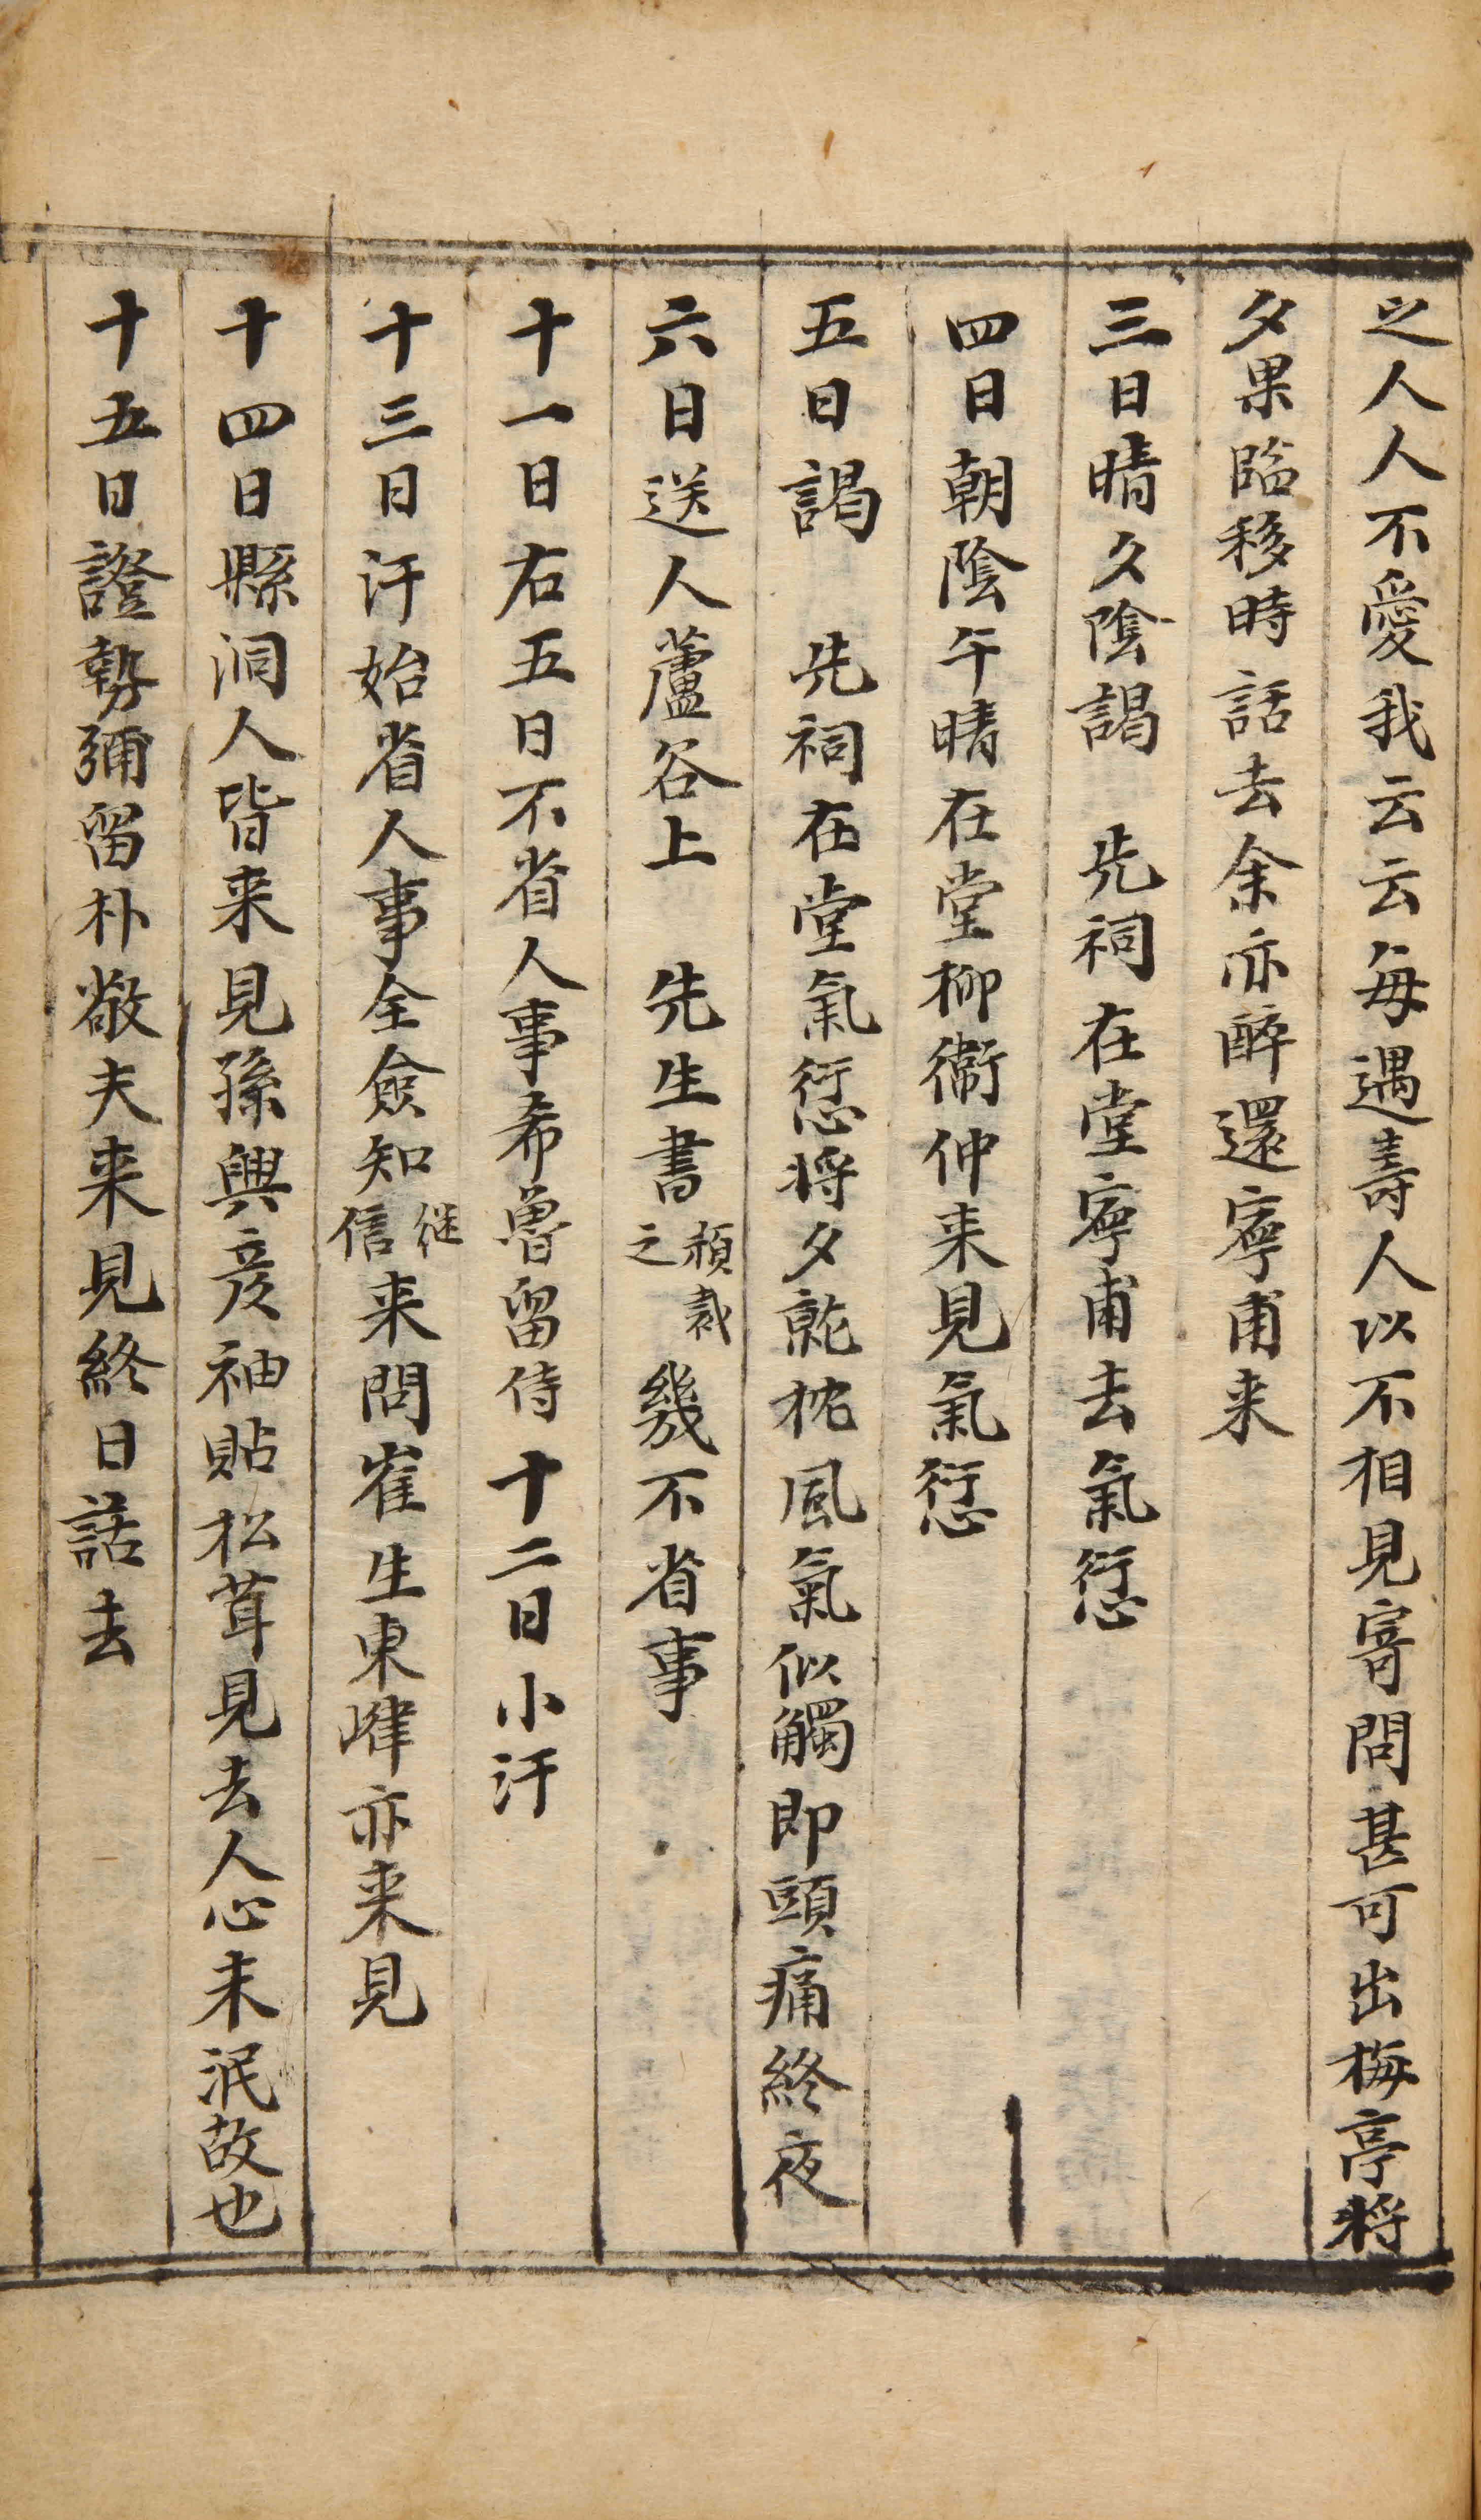 之人人不愛我云云每遇壽人以不相見寄問甚可出梅亭將
夕果臨移時話去余亦醉還寧甫来
三日晴夕陰謁　先祠在堂寧甫去氣愆
四日朝陰午晴在堂柳衛仲来見氣愆
五日謁　先祠在堂氣愆將夕就枕風氣似觸即頭痛終夜
六日送人蘆谷上　先生書幾不省事
十一日右五日不省人事希魯留侍十二日小汗
十三日汗始省人事全僉知継信来問崔生東嵂亦来見
十四日縣洞人皆来見孫興彦袖貼松茸見去人心未泯故也
十五日證勢彌留朴敬夫来見終日話去